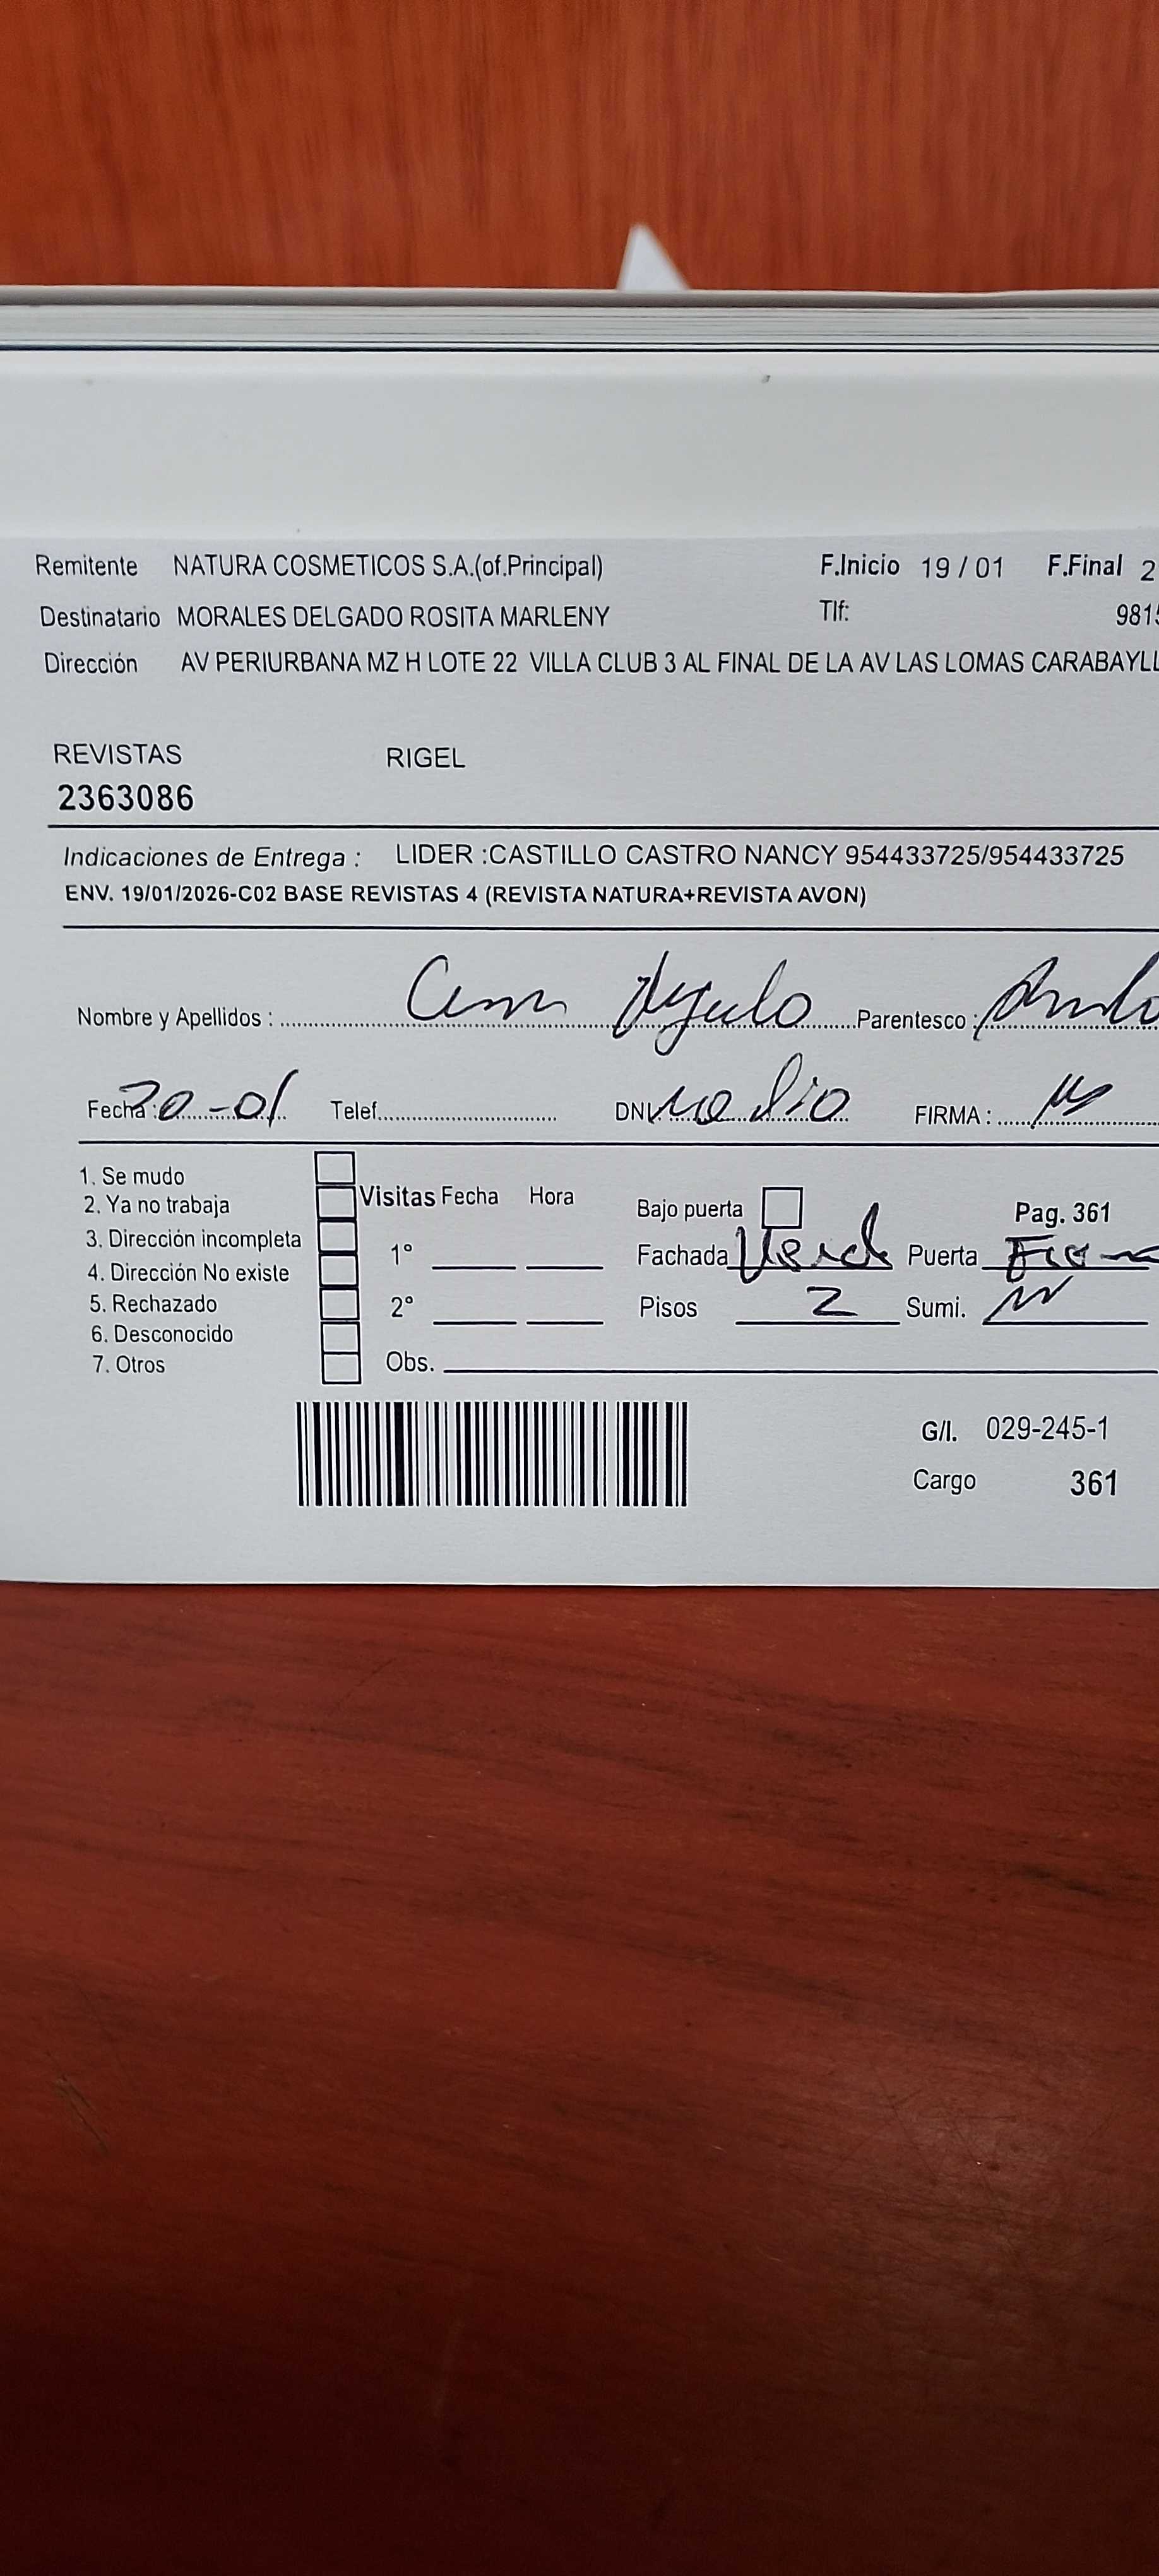 Remitente NATURA COSMETICOS S.A.(of.Principal) F.Inicio 19 / 01 F.Final 2
Destinatario MORALES DELGADO ROSITA MARLENY Tlf: 981
Dirección AV PERIURBANA MZ H LOTE 22 VILLA CLUB 3 AL FINAL DE LA AV LAS LOMAS CARABAYLL
REVISTAS RIGEL
2363086
Indicaciones de Entrega : LIDER :CASTILLO CASTRO NANCY 954433725/954433725
ENV. 19/01/2026-C02 BASE REVISTAS 4 (REVISTA NATURA+REVISTA AVON)
Nombre y Apellidos : Parentesco :
Fecha : 20-01 Telef. DNI no dio FIRMA :
1. Se mudo
2. Ya no trabaja Visitas Fecha Hora Bajo puerta Pag. 361
3. Dirección incompleta 1° Fachada Verde Puerta
4. Dirección No existe
5. Rechazado 2° Pisos 2 Sumi.
6. Desconocido
7. Otros Obs.
G/I. 029-245-1
Cargo 361